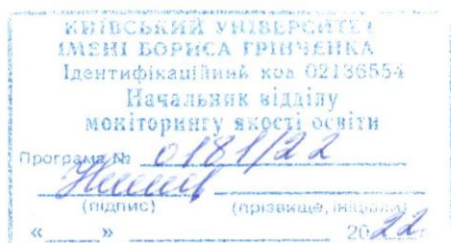 КИЇВСЬКИЙ УНІВЕРСИТЕТ
ІМЕНІ БОРИСА ГРІНЧЕНКА
Ідентифікаційний код 02136554
Начальник відділу
моніторингу якості освіти
Програма № 0181/22
(підпис) (прізвище, ініціали)
« » 2022